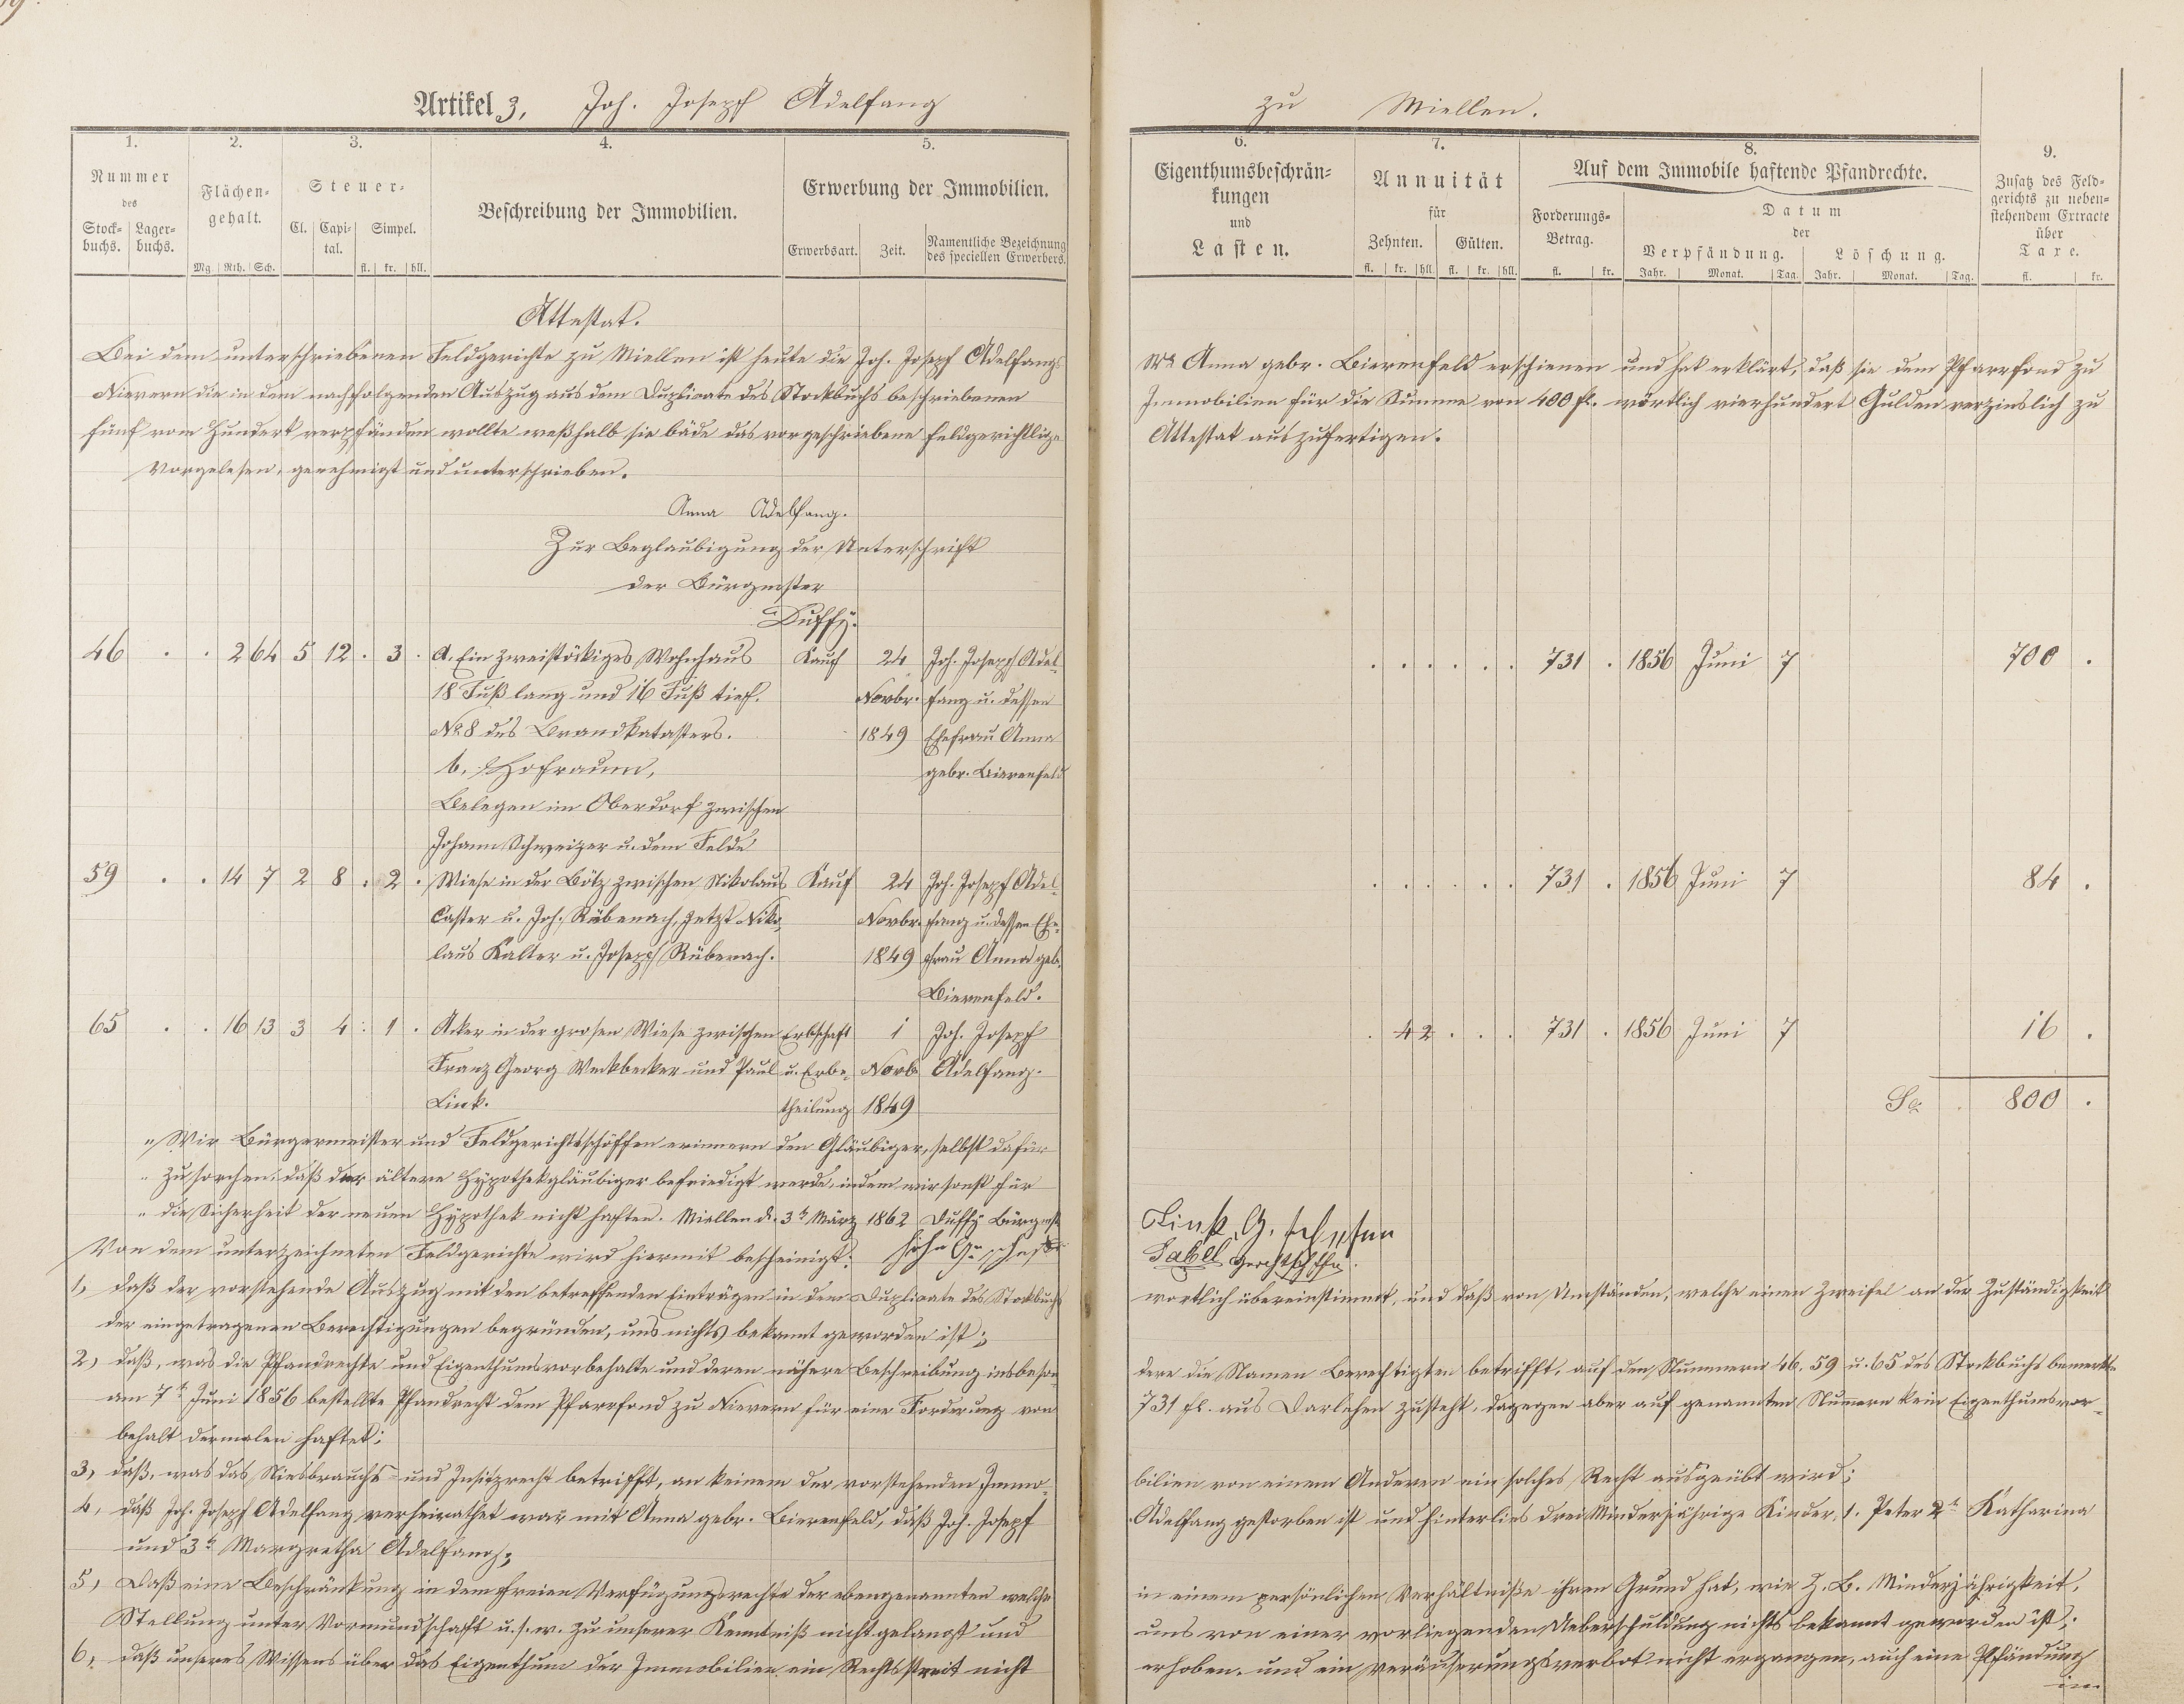 Artikel 3, Joh. Joseph Adelfang zu Miellen.
1. 2. 3. 4. 5. 6. 7. 8. 9.
Nummer des Stock- buchs. Lager- buchs.
Flächen- gehalt. Mg. Rth. Sch.
Steuer- Cl. Capi- tal. Simpel. fl. kr. hll.
Beschreibung der Immobilien.
Erwerbung der Immobilien.
Erwerbsart. Zeit. Namentliche Bezeichnung des speciellen Erwerbers.
Eigenthumsbeschrän- kungen und Lasten.
Annuität für Zehnten. Gülten. fl. kr. hll. fl. kr. hll.
Auf dem Immobile haftende Pfandrechte.
Forderungs- Betrag. fl. kr.
Datum der Verpfändung. Löschung.
Jahr. Monat. Tag. Jahr. Monat. Tag.
Zusatz des Feld- gerichts zu neben- stehendem Extracte über Taxe. fl. kr.
Attestat.
Bei dem unterschriebenen Feldgerichte zu Miellen ist heute die Joh. Joseph Adelfang's Wb. Anna gebr. Bierenfeld erschienen und hat erklärt, daß sie dem Pfarrfond zu
Nievern die in dem nachfolgenden Auszug aus dem Duplicate des Stockbuchs beschriebenen Immobilien für die Summe von 400 fl. wördlich vierhundert Gulden verzinslich zu
fünf vom Hundert verpfänden wollte weßhalb sie bäde das vorgeschriebene feldgerichtliche Attestat auszufertigen.
Vorgelesen, genehmigt und unterschrieben.
Anna Adelfang.
Zur Beglaubigung der Unterschrift
der Bürgmster
Duffy.
46 . . 2 64 5 12 . 3 . A. Ein zweistöckiges Wohnhaus Kauf 24 Joh. Joseph Adel- . . . . . . 731 . 1856 Juni 7 700 .
18 Fuß lang und 16 Fuß tief. Novbr. fang u. dessen
No. 8 des Brandkatasters. 1849 Ehefrau Anna
b. Hofraum, gebr. Bierenfeld
Belegen im Oberdorf zwischen
Johann Schweizer u. dem Felde
59 . . 14 7 2 8 . 2 . Wiese in der Bötz zwischen Nikolaus Kauf 24 Joh. Joseph Adel- . . . . . . 731 . 1856 Juni 7 84 .
Caster u. Joh. Rübenach, jetzt Niko- Novbr. fang u. dessen Ehe-
laus Kalter u. Joseph Rübenach. 1849 frau Anna geb.
Bierenfeld.
65 . . 16 13 3 4 . 1 . Acker in der grosen Wiese zwischen Erbschaft 1 Joh. Joseph . 4 2 . . . 731 . 1856 Juni 7 16 .
Franz Georg Weckbecker und Paul u. Erbe- Novb. Adelfang.
Link. theilung 1849 Sa. 800 .
"Wir Bürgermeister und Feldgerichtsschöffen erinnern den Gläubiger, selbst dafür
" zu sorchen, daß der ältere Hypothekgläubiger befriedigt werde, indem wir sonst für
" die Sicherheit der neuen Hypothek nicht haften. Miellen d. 3t März 1862 Duffy Bürgmst
Link, G.
Von dem unterzeichneten Feldgerichte wird hiermit bescheinigt:
Sabel
1, daß der vorstehende Auszug mit den betreffenden Einträgen in dem Duplicate des Stockbuchs wortlich übereinstimmt, und daß von Umständen, welche einen Zweifel an der Zuständigkeit
der eingetragenen Berechtigungen begründen, uns nichts bekannt geworden ist;
2, daß, was die Pfandrechte und Eigenthumsvorbehalte und deren nähere Beschreibung insbeson- dere die Namen Berechtigten betrifft, auf den Nummern 46. 59 u. 65 des Stockbuchs bemerkte
am 7t Juni 1856 bestellte Pfandrecht dem Pfarrfond zu Nievern für eine Forderung von 731 fl. aus Darlehen zusteht, dagegen aber auf genannten Nummern kein Eigenthumsvor-
behalt dermalen haftet;
3, daß, was das Niesbrauchs- und Insitzrecht betrifft, an keinem der vorstehenden Immo- bilien von einem Anderen ein solches Recht ausgeübt wird;
4, daß Joh. Joseph Adelfang verheirathet war mit Anna gebr. Bierenfeld, daß Joh. Joseph Adelfang gestorben ist und hinterlies drei Minderjährige Kinder, 1. Peter 2t Katharina
und 3t Margretha Adelfang;
5, Daß eine Beschränkung in dem freien Verfügungsrechte der ebengenannten welche in einem persönlichen Verhältniße ihren Grund hat, wie z. B. Minderjährigkeit,
Stellung unter Vormundschaft u. s. w. zu unserer Kenntniß nicht gelangt und uns von einer vorliegenden Ueberschuldung nichts bekannt geworden ist;
6, daß unseres Wissens über das Eigenthum der Immobilien ein Rechtsstreit nicht erhoben, und ein Veräuserungsverbot nicht ergangen, auch eine Pfändung
im